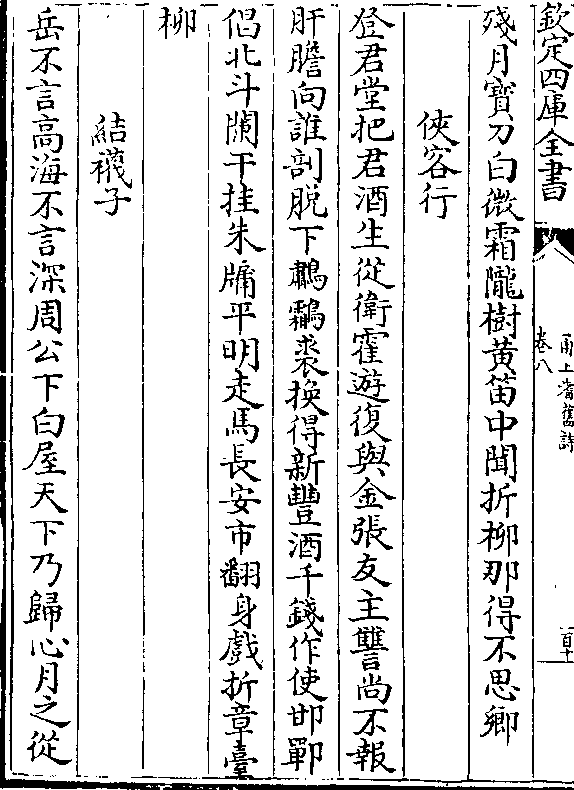 欽定四庫全書
甬上耆舊詩
卷八
百十
殘月寶刀白微霜隴樹黄笛中聞折柳那得不思鄉
俠客行
登君堂把君酒生從衛霍遊復與金張友主讐尚不報
肝膽向誰剖脱下鷫鸘裘換得新豐酒千錢作使邯鄲
倡北斗闌干挂朱牗平明走馬長安市翻身戲折章臺
柳
結襪子
岳不言高海不言深周公下白屋天下乃歸心月之從